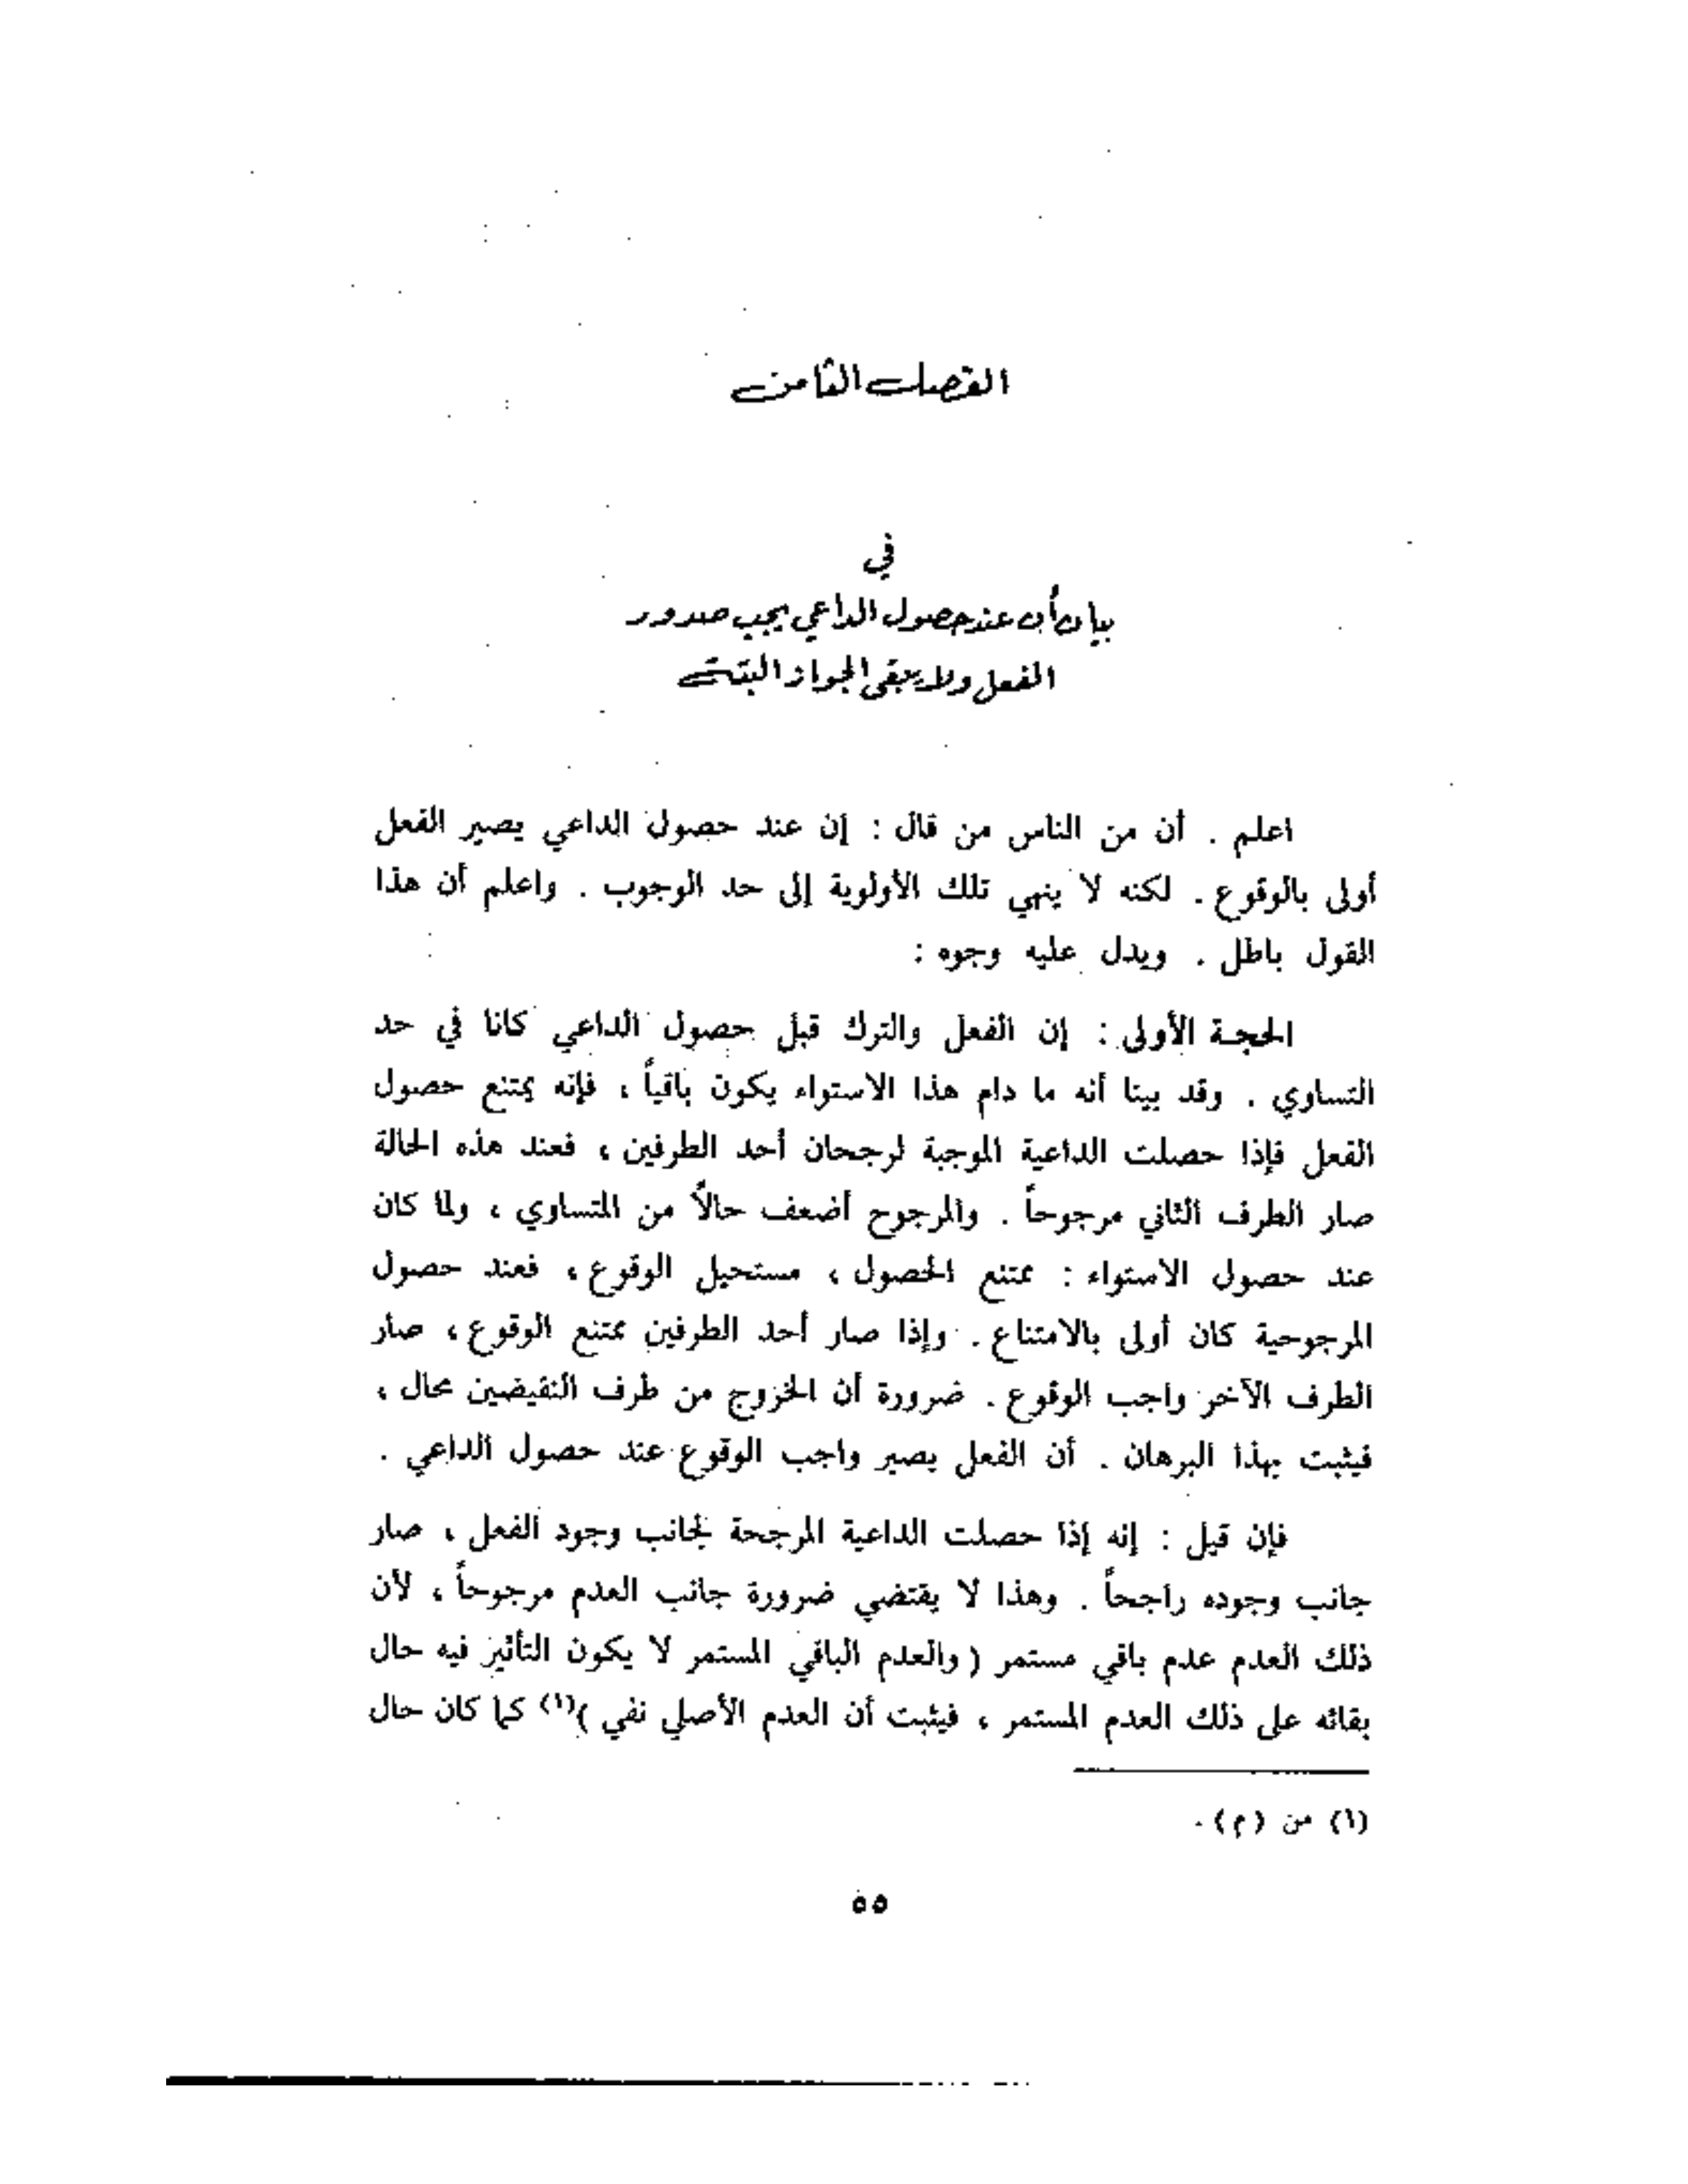 الفصل الثامن
في
بيان أن عند حصول الداعي يجب صدور
الفعل ولا يبقى الجواز البتة
اعلم . أن من الناس من قال : إن عند حصول الداعي يصير الفعل
أولى بالوقوع . لكنه لا ينهي تلك الأولوية إلى حد الوجوب . واعلم أن هذا
القول باطل . ويدل عليه وجوه :
الحجة الأولى : إن الفعل والترك قبل حصول الداعي كانا في حد
التساوي . وقد بينا أنه ما دام هذا الاستواء يكون باقياً ، فإنه يمتنع حصول
الفعل فإذا حصلت الداعية الموجبة لرجحان أحد الطرفين ، فعند هذه الحالة
صار الطرف الثاني مرجوحاً . والمرجوح أضعف حالاً من المتساوي ، ولما كان
عند حصول الاستواء : ممتنع الحصول ، مستحيل الوقوع ، فعند حصول
المرجوحية كان أولى بالامتناع . وإذا صار أحد الطرفين ممتنع الوقوع ، صار
الطرف الآخر واجب الوقوع . ضرورة أن الخروج من طرف النقيضين محال ،
فيثبت بهذا البرهان . أن الفعل يصير واجب الوقوع عند حصول الداعي .
فإن قيل : إنه إذا حصلت الداعية المرجحة لجانب وجود الفعل ، صار
جانب وجوده راجحاً . وهذا لا يقتضي ضرورة جانب العدم مرجوحاً ، لأن
ذلك العدم عدم باقي مستمر ( والعدم الباقي المستمر لا يكون التأثير فيه حال
بقائه على ذلك العدم المستمر ، فيثبت أن العدم الأصلي نفي )(١) كما كان حال
(١) من (م) .
٥٥